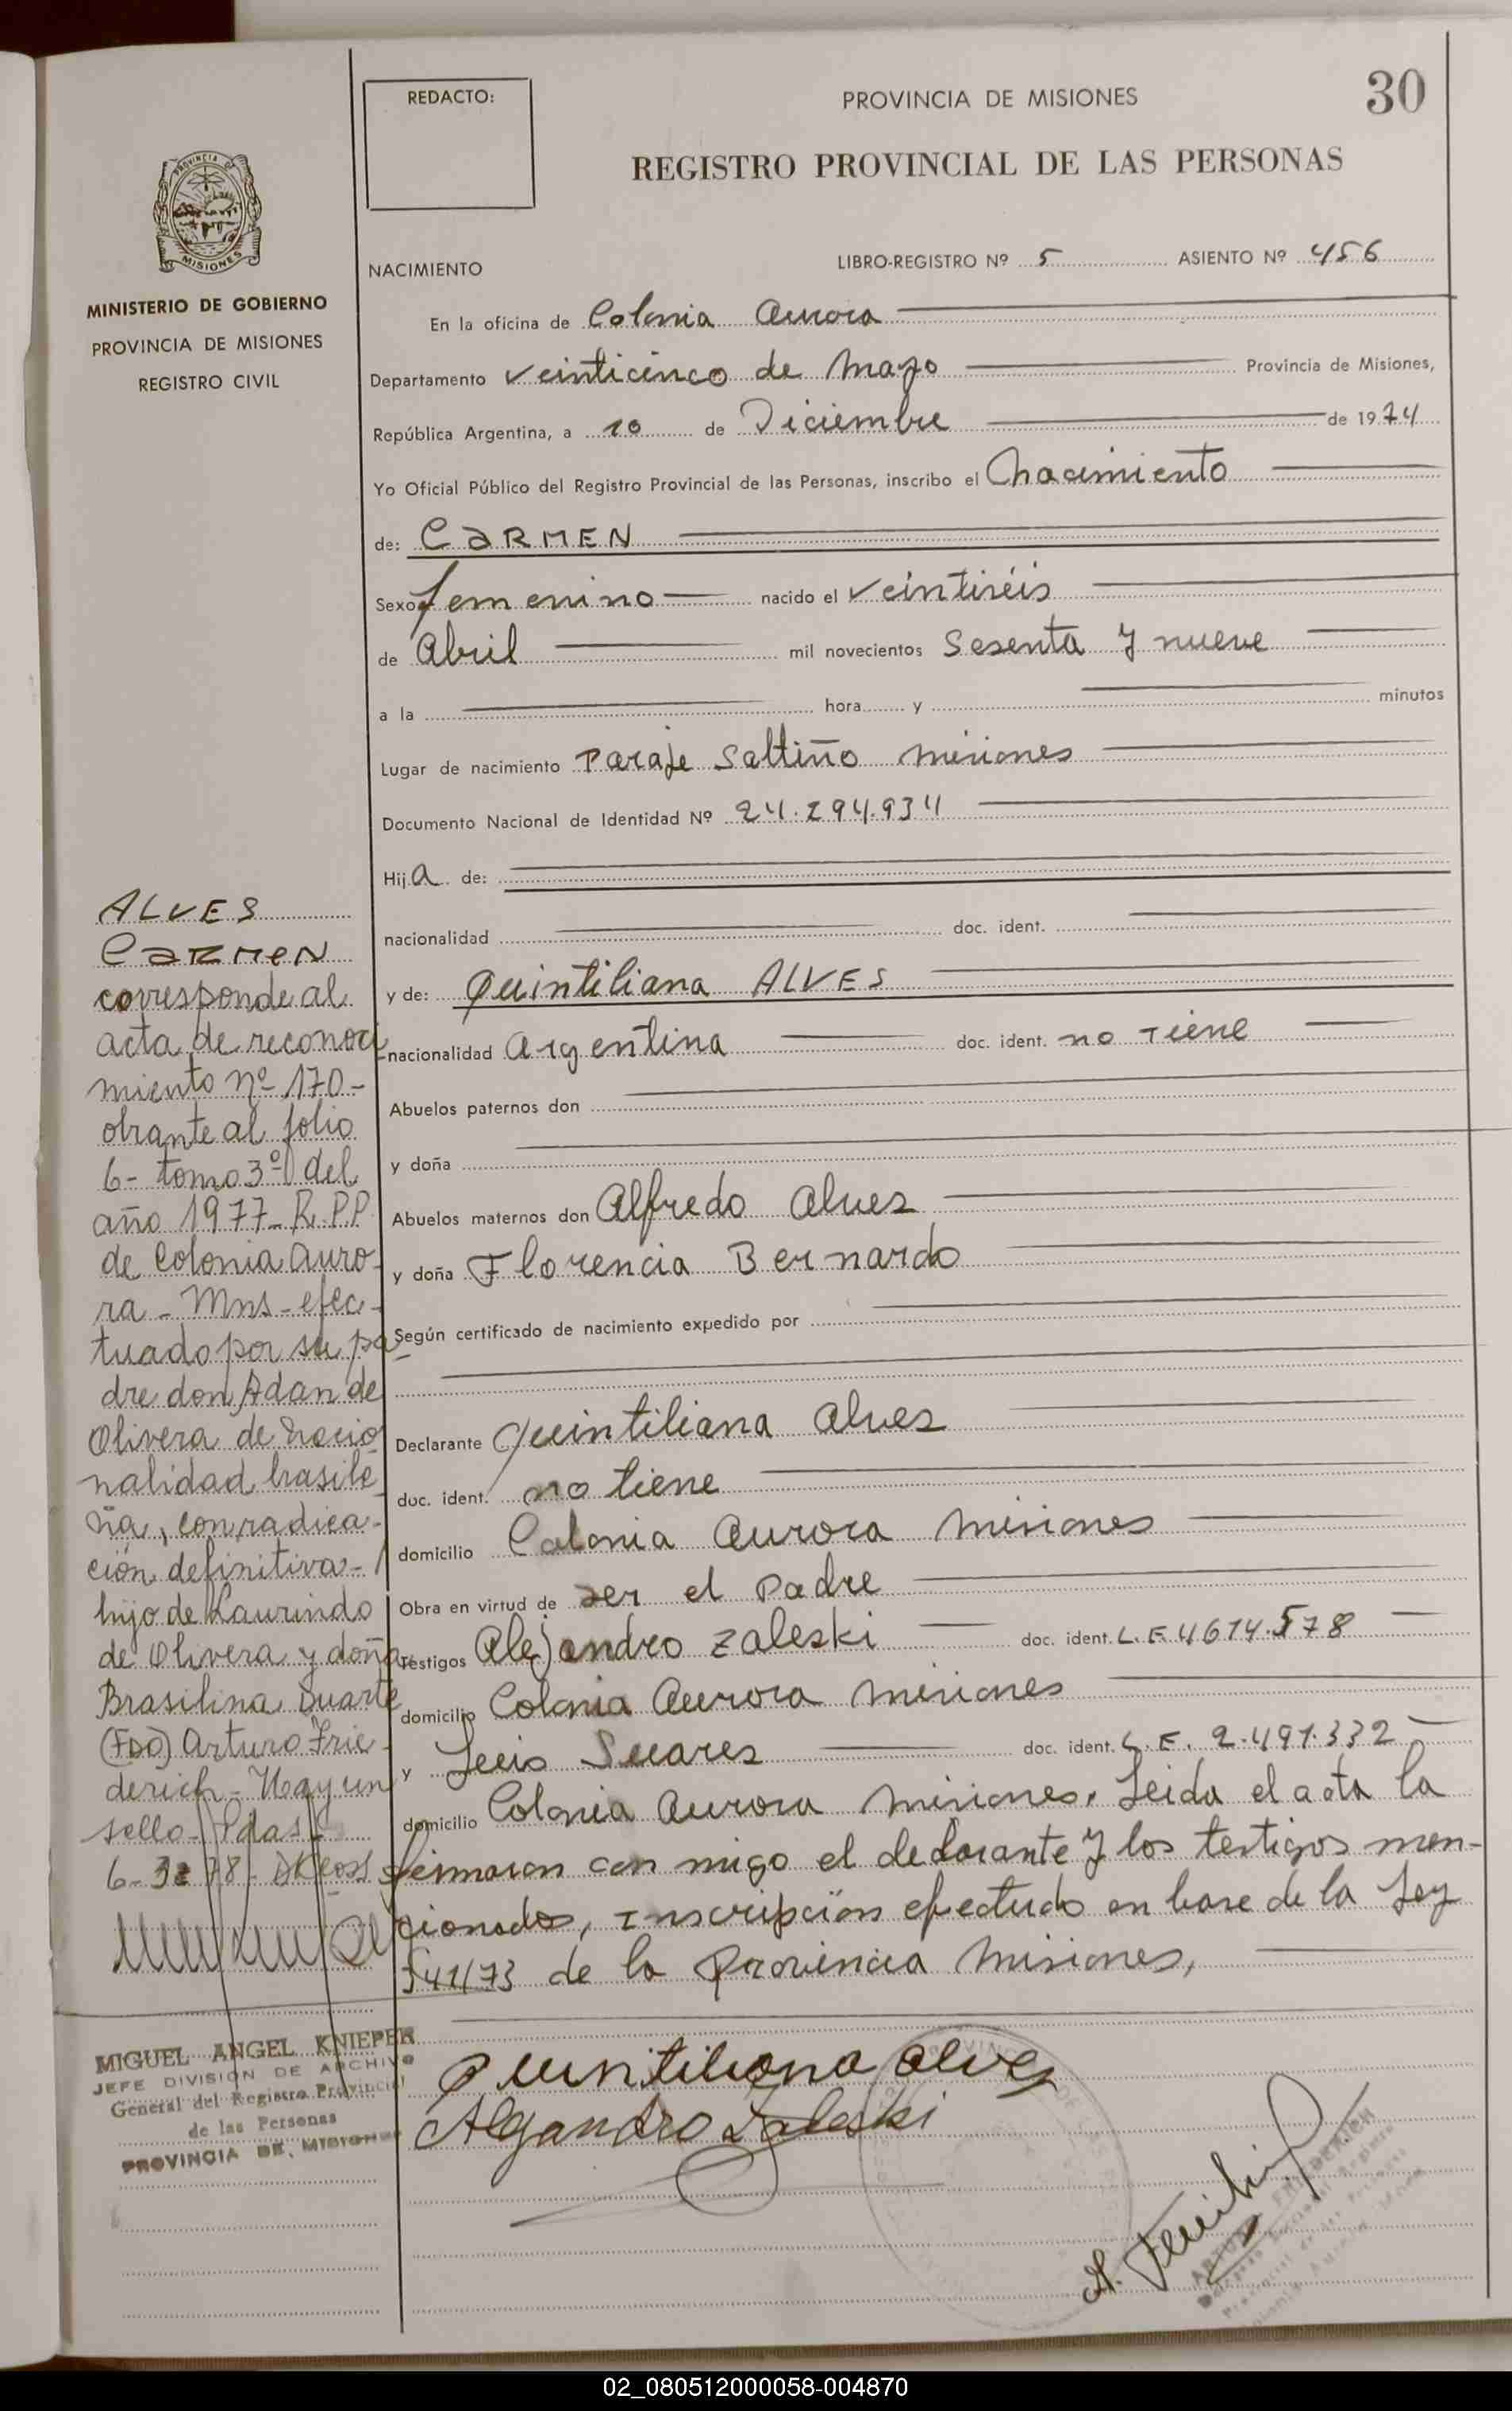 REDACTO:
PROVINCIA DE MISIONES
30
REGISTRO PROVINCIAL DE LAS PERSONAS
PROVINCIA DE
MISIONES
MINISTERIO DE GOBIERNO
PROVINCIA DE MISIONES
REGISTRO CIVIL
NACIMIENTO
LIBRO-REGISTRO Nº 5 ASIENTO Nº 456
En la oficina de Colonia Aurora
Departamento veinticinco de Mayo Provincia de Misiones,
República Argentina, a 10 de Diciembre de 1974
Yo Oficial Público del Registro Provincial de las Personas, inscribo el Nacimiento
de: CARMEN
Sexo femenino nacido el veintiséis
de Abril mil novecientos Sesenta y nueve
a la hora y minutos
Lugar de nacimiento Paraje Saltiño Misiones
Documento Nacional de Identidad Nº 24.294.934
Hija de:
nacionalidad doc. ident.
y de: Quintiliana ALVES
nacionalidad Argentina doc. ident. no tiene
Abuelos paternos don
y doña
Abuelos maternos don Alfredo Alves
y doña Florencia Bernardo
Según certificado de nacimiento expedido por
Declarante Quintiliana Alves
doc. ident. no tiene
domicilio Colonia Aurora Misiones
Obra en virtud de ser el Padre
Testigos Alejandro Zaleski doc. ident. L.E. 4614.578
domicilio Colonia Aurora Misiones
y Luis Suares doc. ident. L.E. 2.491.332
domicilio Colonia Aurora Misiones. Leida el acta la
firmaron con migo el declarante y los testigos men-
cionados, Inscripción efectuda en base de la Ley
541/73 de la Provincia Misiones,
ALVES
CARMEN
corresponde al
acta de reconoci
miento nº 170-
obrante al folio
6- tomo 3º del
año 1977- R.P.P.
de Colonia Auro-
ra - Mns - efec-
tuado por su pa-
dre don Adan de
Olivera de nacio
nalidad brasile
ña, con radica-
ción definitiva-
hijo de Laurindo
de Olivera y doña
Brasilina Duarte
(FDO) Arturo Frie-
derich - Hay un
sello - Pdas
MIGUEL ANGEL KNIEPER
JEFE DIVISION DE ARCHIVO
General del Registro Provincial
de las Personas
PROVINCIA DE MISIONES
Quintiliana Alves
Alejandro Zaleski
02_080512000058-004870